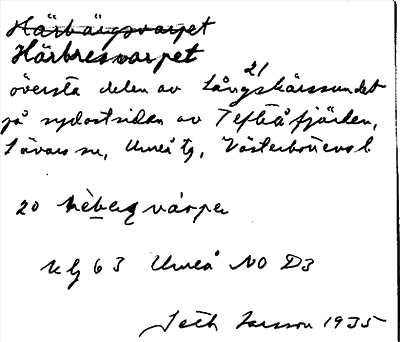 Härbärgsvarpet
Härbresvarpet
21
översta delen av Långskärssundet
på sydostsidan av Tefteåfjärden,
Sävars sn, Umeå tg, Västerbottens l
20 varper
Kbl 63 Umeå NO D3
Seth Larsson 1935